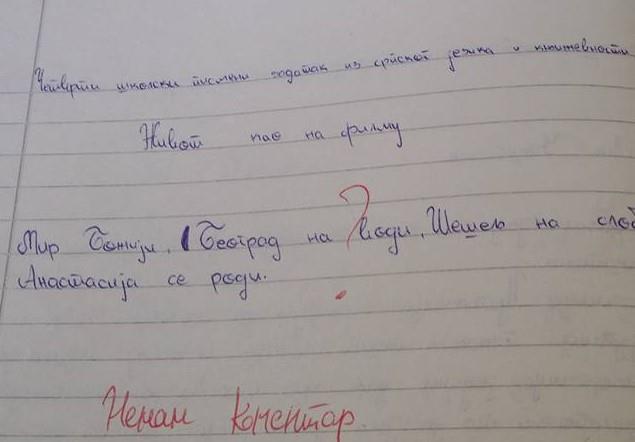 Четврти школски писмени задатак из српског језика и књижевности
Живот као на филму
?
Мир Божији, Београд на води, Шешељ на слоб
Анастасија се роди.
Немам коментар.